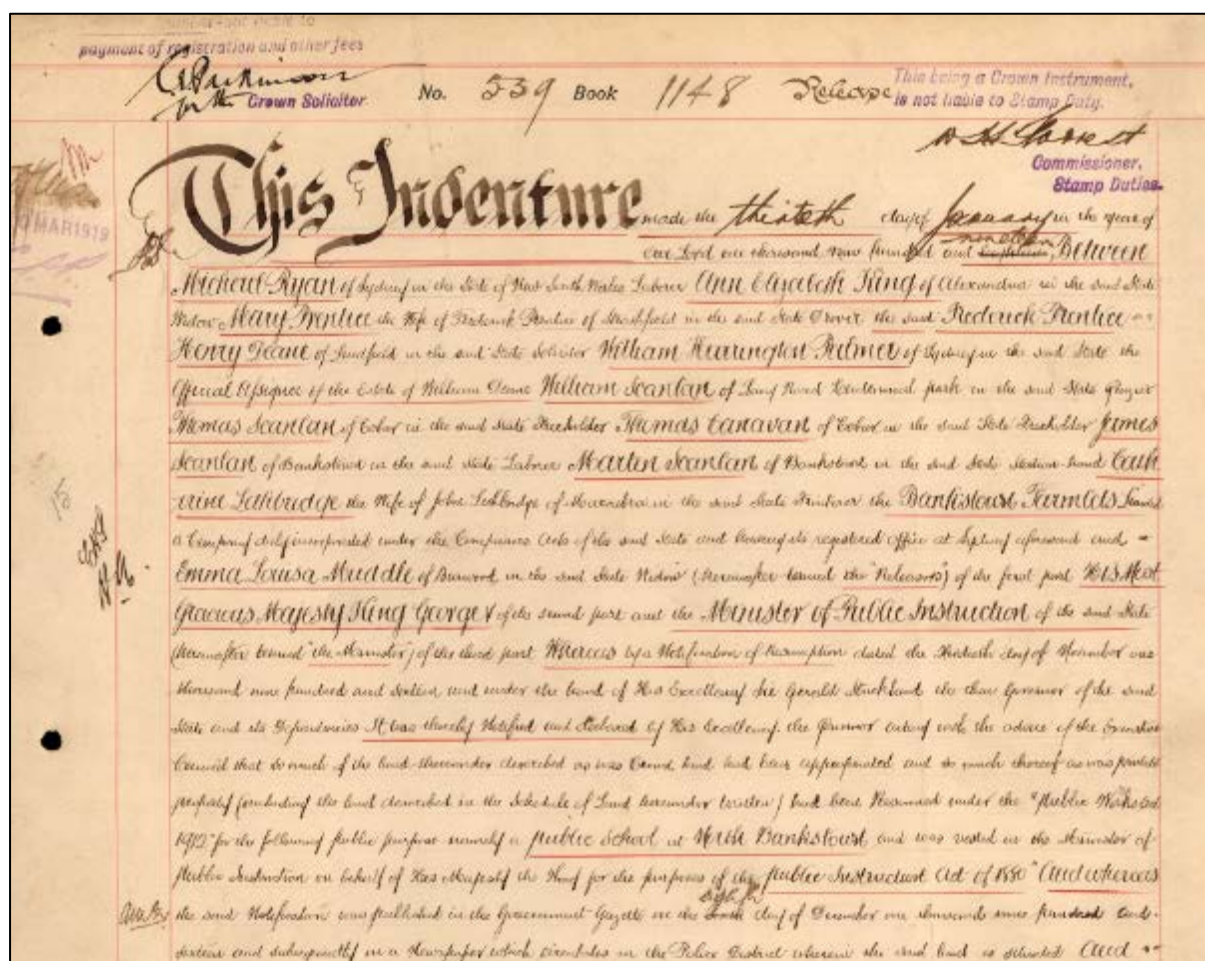 payment of registration and other fees
for the Crown Solicitor No. 539 Book 1148 Release This being a Crown Instrument,
is not liable to Stamp Duty.
Commissioner,
Stamp Duties.
MAR 1919
This Indenture made the thirtieth day of January in the year of
our Lord one thousand nine hundred and nineteen Between
Michael Ryan of Sydney in the State of New South Wales Laborer Ann Elizabeth King of Alexandria in the said State
Widow Mary Prentice the Wife of Frederick Prentice of in the said State Drover the said Frederick Prentice
Henry Deane of Lindfield in the said State Solicitor William Harrington Palmer of Sydney in the said State the
Official Assignee of the Estate of William Deane William Scanlan of Road Centennial park in the said State
Thomas Scanlan of Cobar in the said State Freeholder Thomas Canavan of Cobar in the said State Freeholder James
Scanlan of Bankstown in the said State Laborer Martin Scanlan of Bankstown in the said State Station hand Cath
erine Lethbridge the Wife of John Lethbridge of in the said State the Bankstown Farmlets Limited
a Company duly incorporated under the Companies Acts of the said State and having its registered office at Sydney aforesaid and
Emma Louisa Muddle of Burwood in the said State Widow (hereinafter termed the "Releasors") of the first part His Most
Gracious Majesty King George V of the second part and the Minister of Public Instruction of the said State
(hereinafter termed "the Minister") of the third part Whereas by a Notification of Resumption dated the thirtieth day of November one
thousand nine hundred and sixteen and under the hand of His Excellency Sir Gerald Strickland the then Governor of the said
State and its Dependencies It was thereby Notified and Declared by His Excellency the Governor acting with the advice of the Executive
Council that so much of the land thereunder described as was Crown land had been appropriated and so much thereof as was private
property (including the land described in the Schedule of Land hereunder written) had been Resumed under the "Public Works Act
1912" for the following public purpose namely a public School at North Bankstown and was vested in the Minister of
Public Instruction on behalf of His Majesty the King for the purposes of the "public Instruction Act of 1880" And whereas
the said Notification was published in the Government Gazette on the eighth day of December one thousand nine hundred and
sixteen and subsequently in a Newspaper which circulates in the Police District wherein the said land is situated And